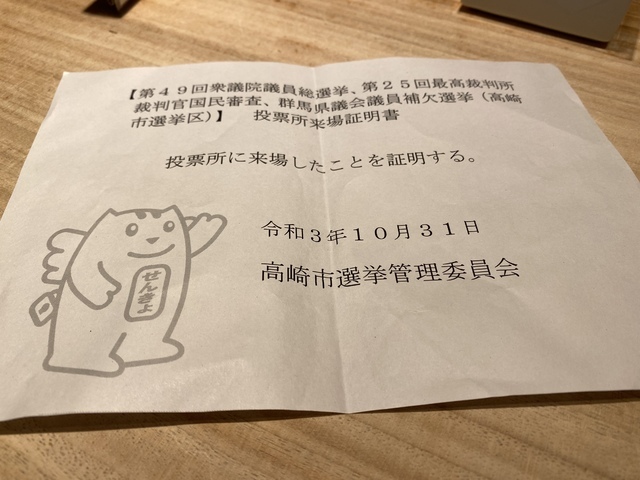 【第４９回衆議院議員総選挙、第２５回最高裁判所
裁判官国民審査、群馬県議会議員補欠選挙（高崎
市選挙区）】　投票所来場証明書
投票所に来場したことを証明する。
令和３年１０月３１日
高崎市選挙管理委員会
せんきょ